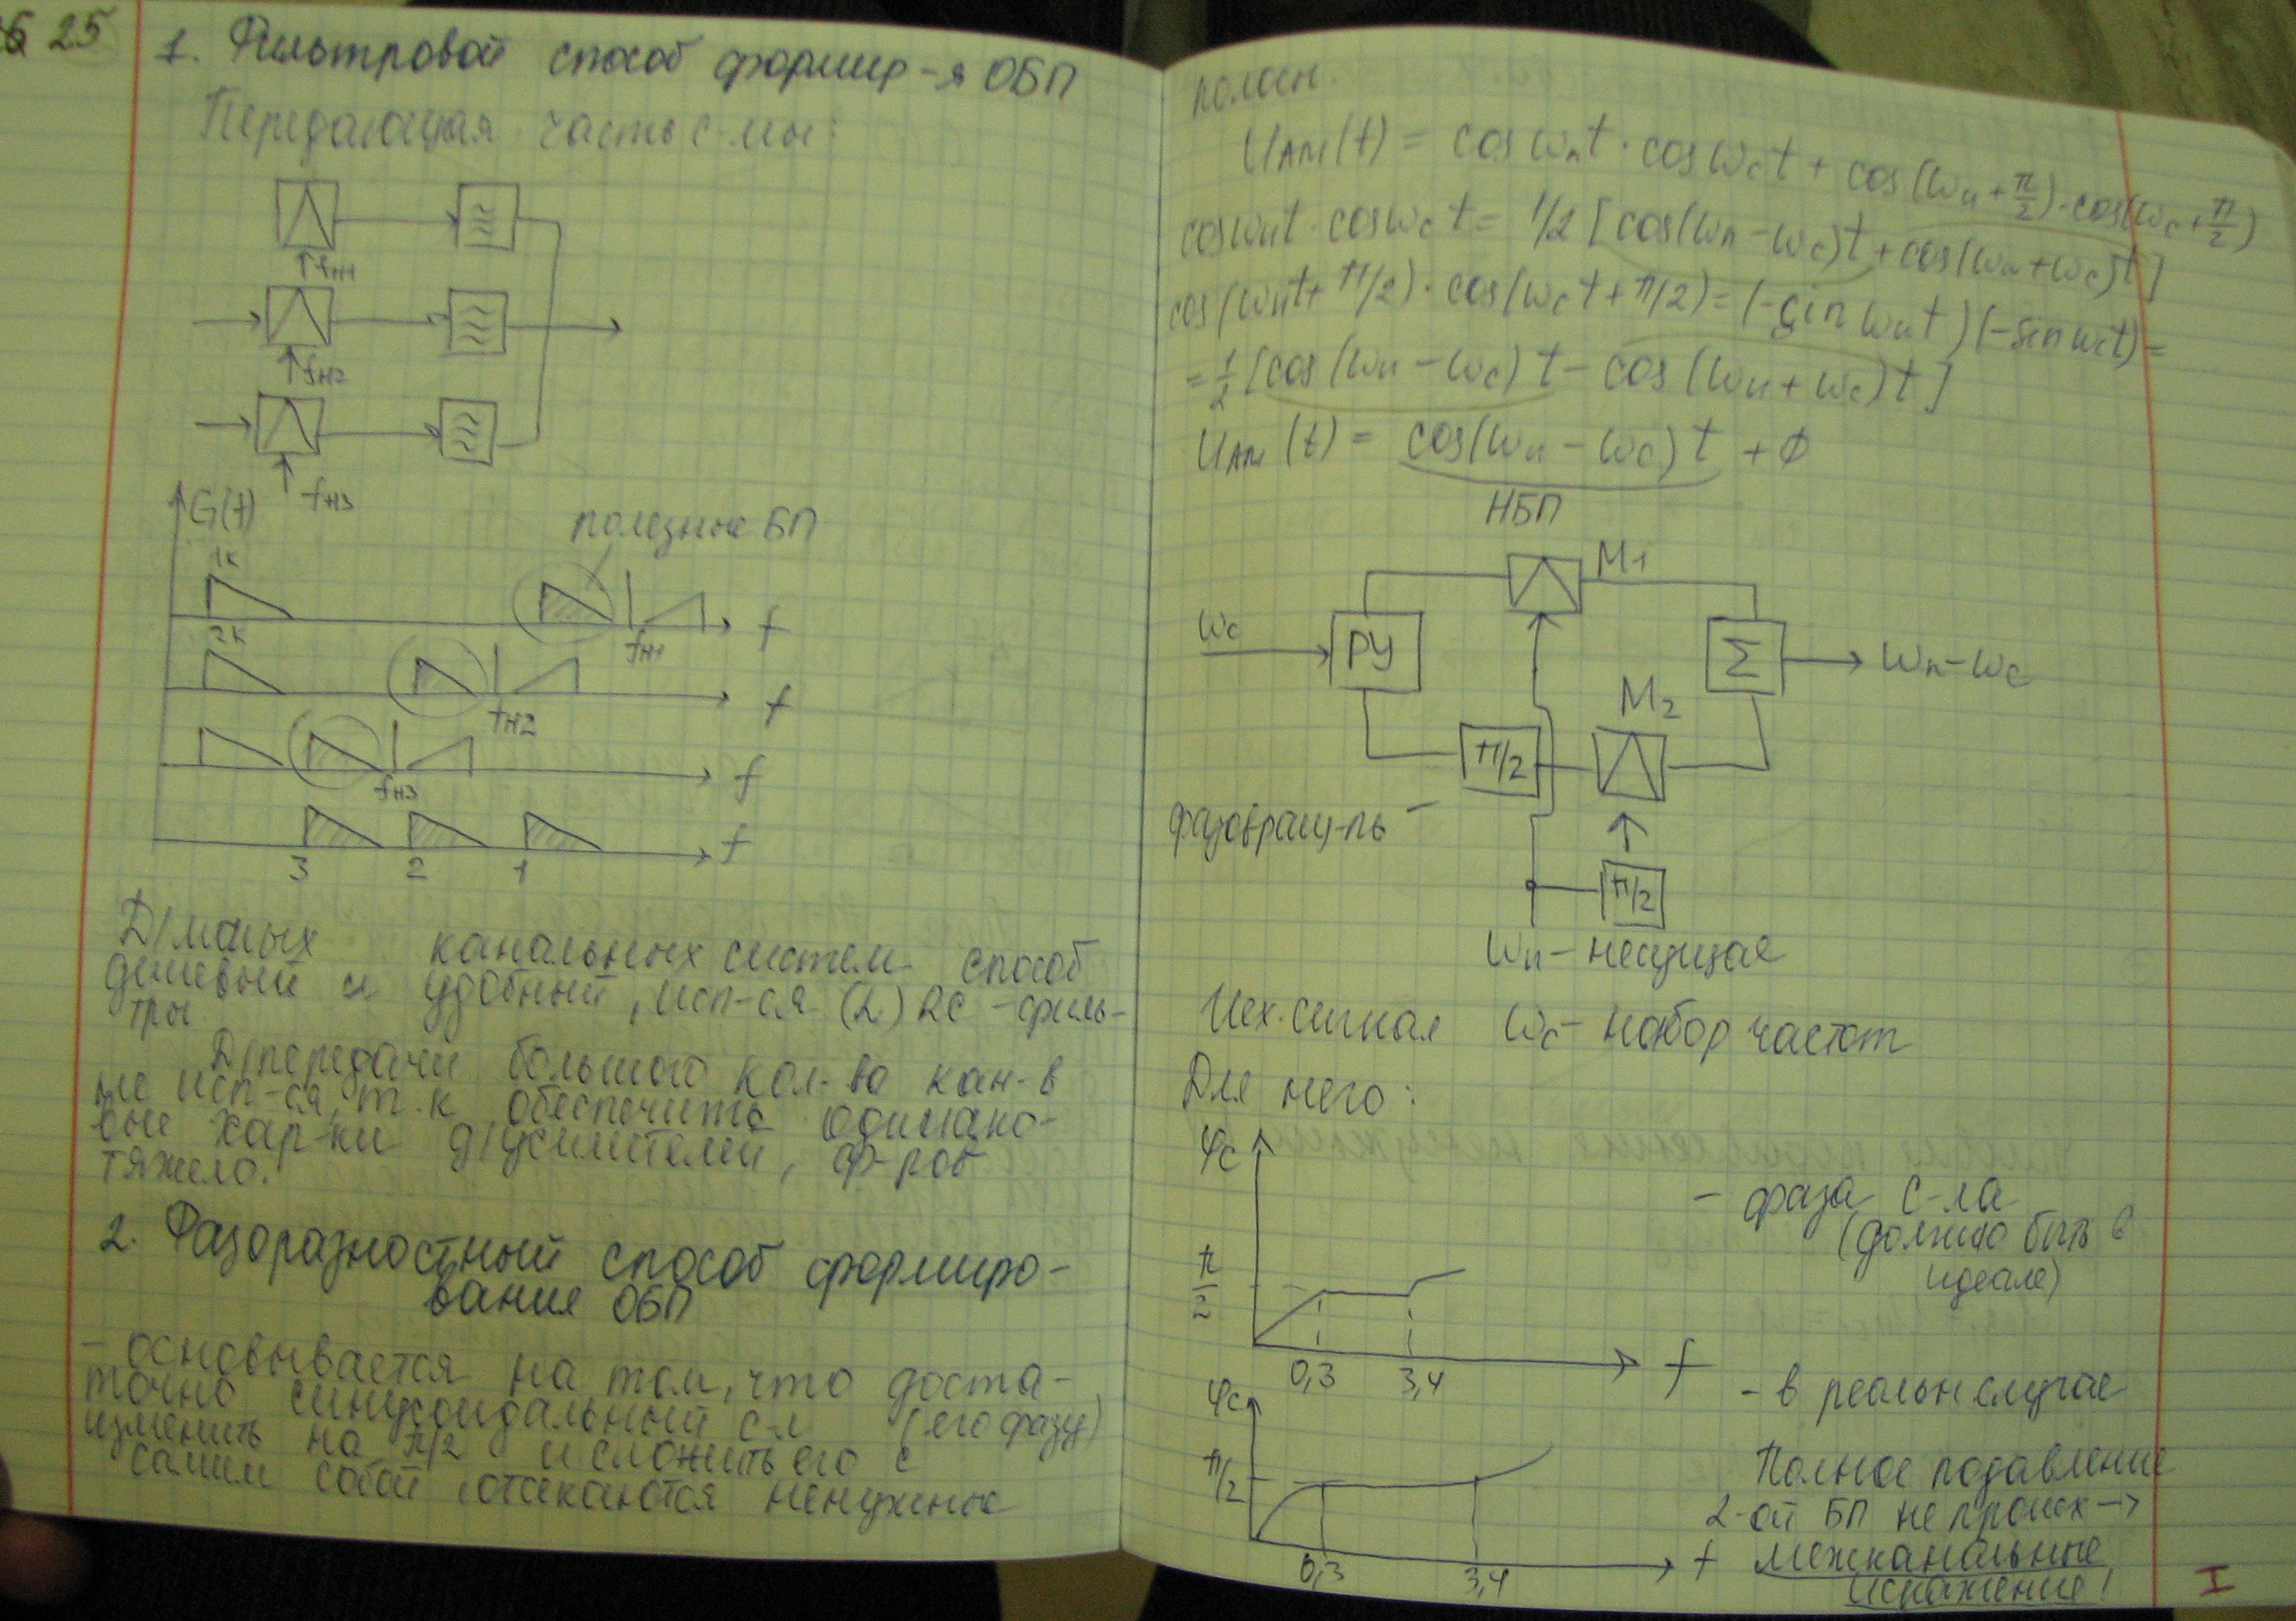 25
1. Фильтровой способ формир-я ОБП
Передающая часть с-мы:
fн1
fн2
fн3
G(f)
полезные БП
1к
f
fн1
2к
f
fн2
f
fн3
f
3 2 1
Д/малых канальных систем способ
дешевый и удобный, исп-ся (L) RC-филь-
тры.
Д/передачи большого кол-ва кан-в
не исп-ся, т.к обеспечить одинако-
вые хар-ки д/усилителей, ф-ров
тяжело.
2. Фазоразностный способ формиро-
вания ОБП
- основывается на том, что доста-
точно синусоидальный с-л (его фазу)
изменить на π/2 и сложить его с
самим собой, отсекаются ненужные
полосы.
UАМ(t) = cos ωнt · cos ωсt + cos(ωн + π/2) · cos(ωс + π/2)
cos ωнt · cos ωсt = 1/2 [cos(ωн - ωс)t + cos(ωн + ωс)t]
cos(ωнt + π/2) · cos(ωсt + π/2) = (-sin ωнt)(-sin ωсt) =
= 1/2 [cos(ωн - ωс)t - cos(ωн + ωс)t]
UАМ(t) = cos(ωн - ωс)t + 0
НБП
M1
ωс
РУ
Σ
ωн - ωс
M2
π/2
фазовращ-ль -
π/2
ωн - несущая
Исх. сигнал ωс - набор частот
Для него:
φс
- фаза с-ла
(должно быть в
идеале)
π/2
0,3 3,4 f
- в реальн случае
φс
π/2
Полное подавление
2-ой БП не происх →
межканальные
искажение!
0,3 3,4 f
I